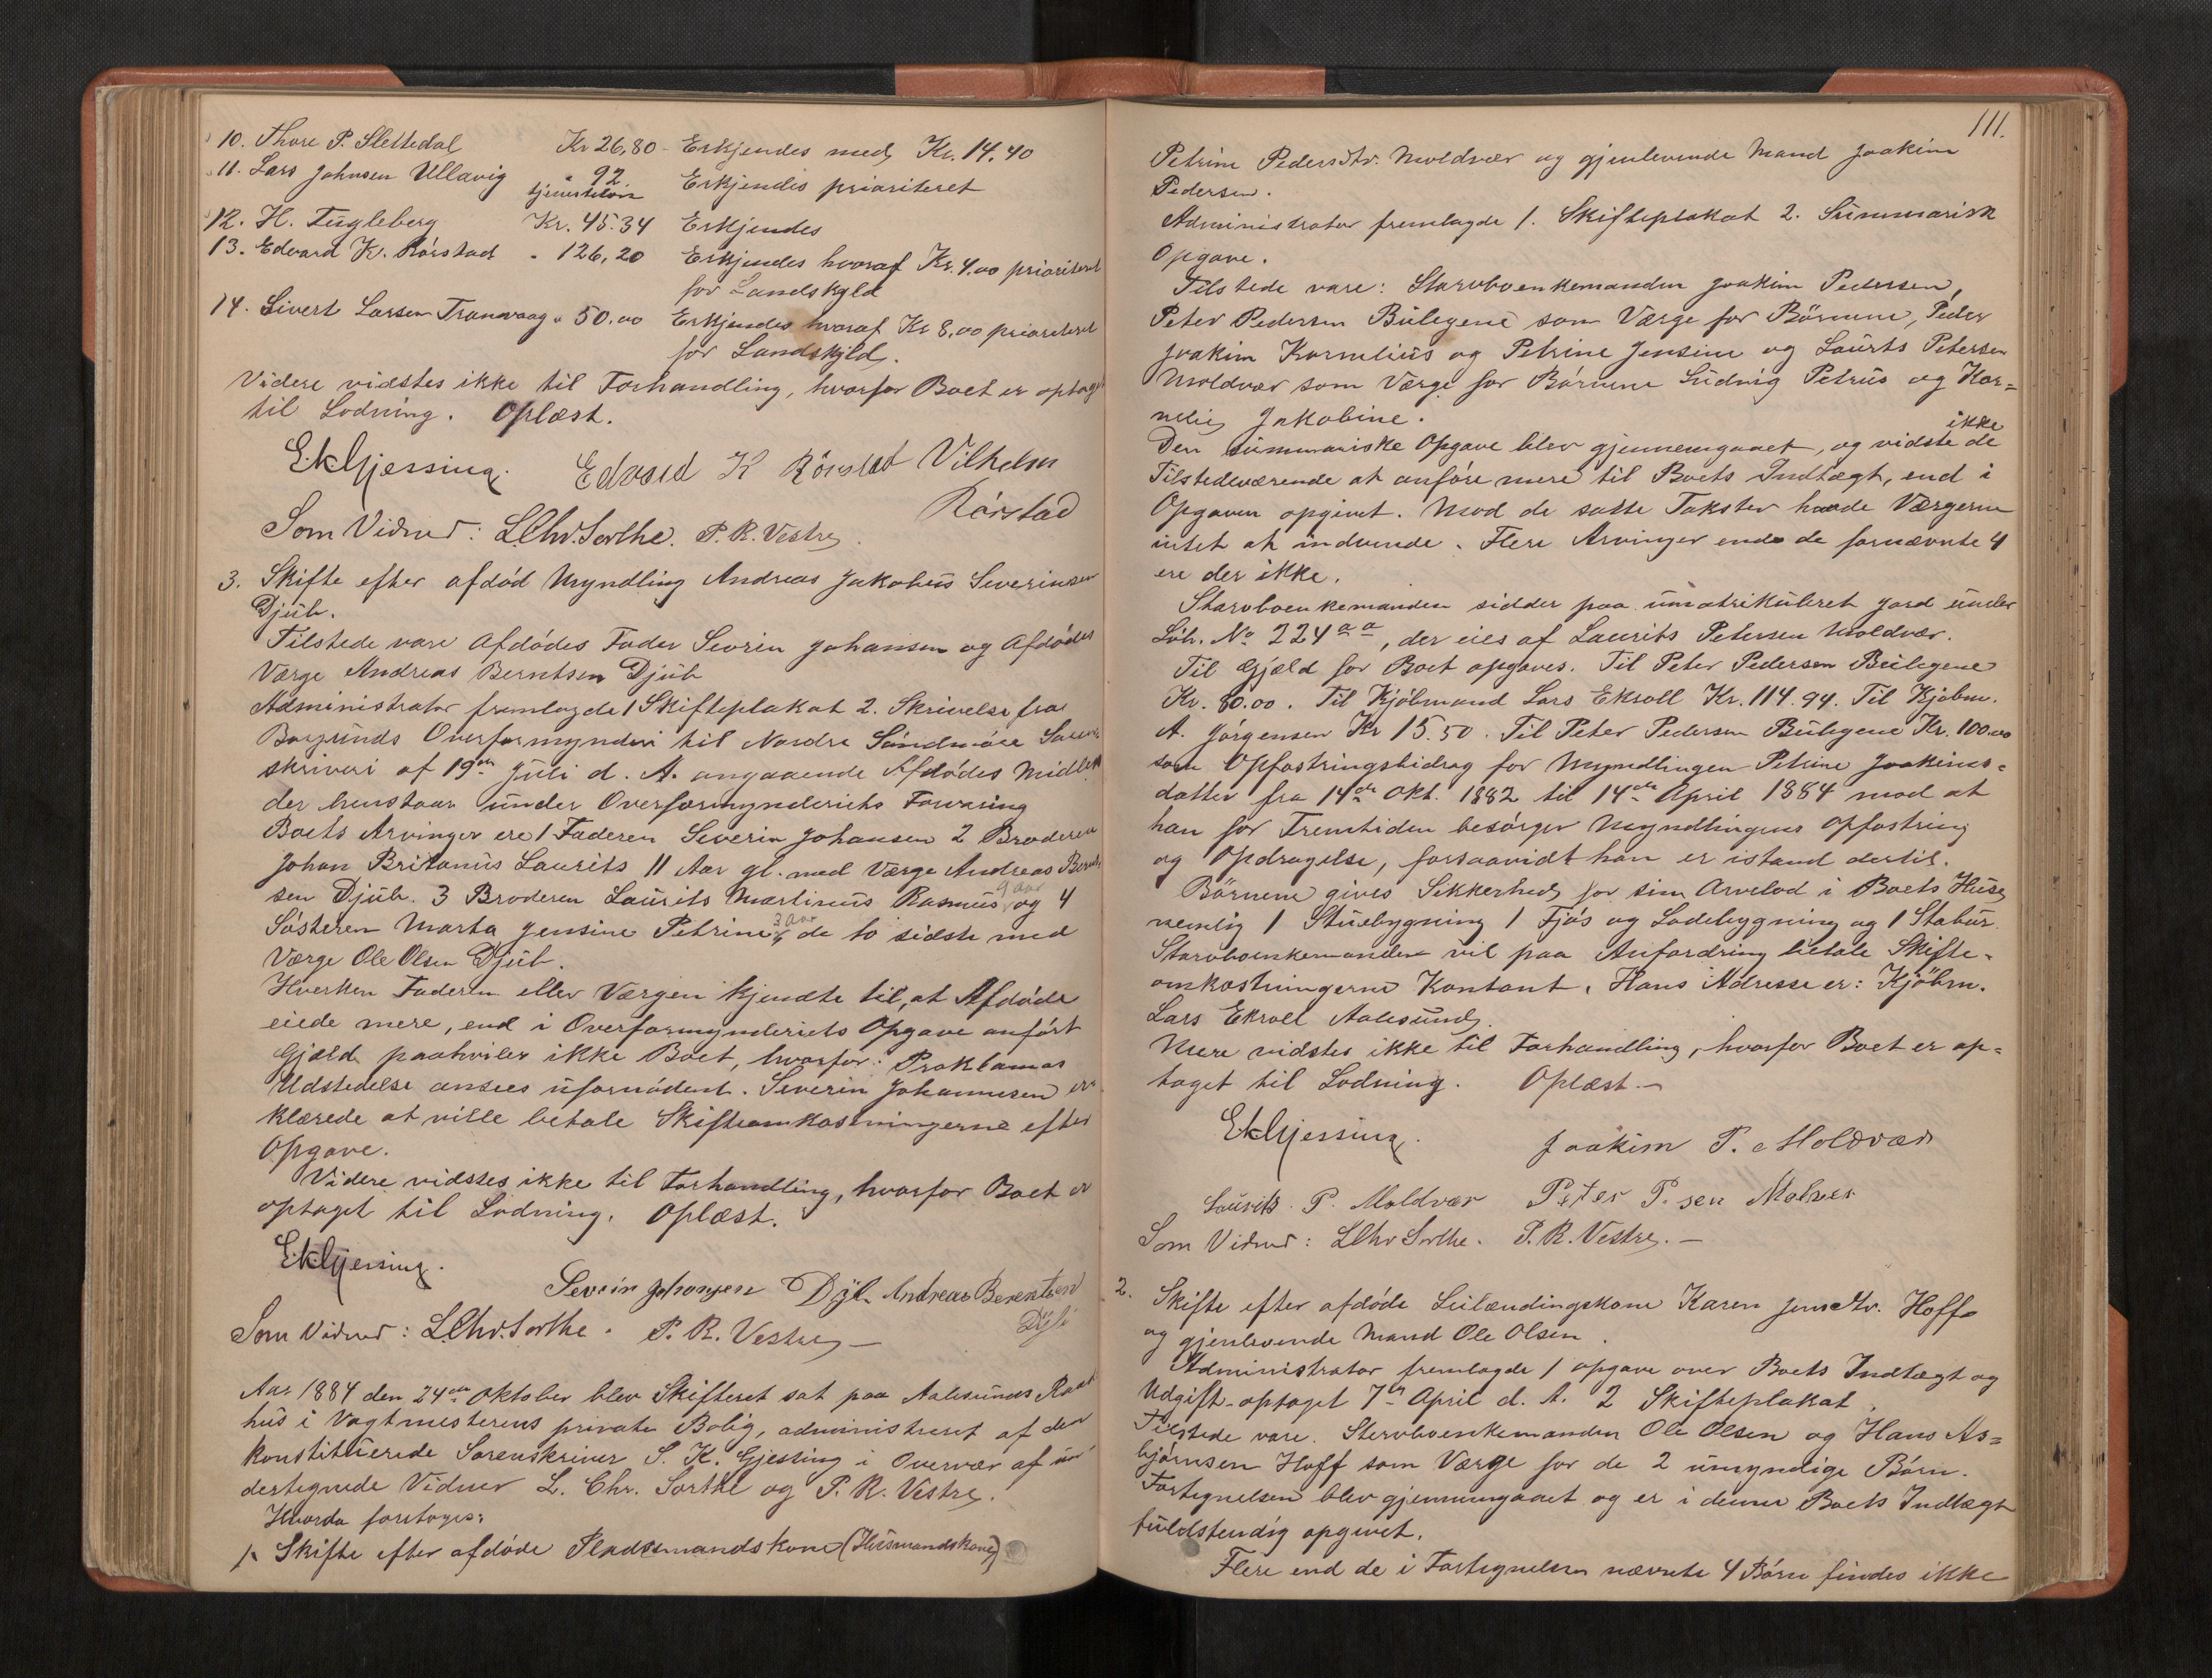 10. Thore P. Slettedal Kr 26,80 - Erkjendes med Kr. 14,40
11. Lars Johnsen Ullavig " 92 Erkjendes prioriteret
tjenesteløn
12. H. Fugleberg Kr. 45.34 Erkjendes
13. Edvard K. Rørstad " 126,20 Erkjendes hvoraf Kr. 4.00 prioriteret
for Landskyld
14. Sivert Larsen Tranvaag " 50.00 Erkjendes hvoraf Kr 8,00 prioriteret
for Landskyld.
Videre vidstes ikke til Forhandling, hvorfor Boet er optaget
til Lodning. Oplæst.
EkGjessing. Edvard K Rörstad Vilhelm
Rørstad
Som Vidner: LChr. Sorthe. P. R. Vestre.
3. Skifte efter afdød Myndling Andreas Jakobus Severinsen
Djub.
Tilstede vare Afdødes Fader Sevrin Johansen og Afdødes
Værge Andreas Berntsen Djub
Administrator fremlagde 1 Skifteplakat 2. Skrivelse fra
Borgunds Overformynderi til Nordre Søndmøre Soren
skriveri af 19de Juli d. A. angaaende Afdødes Midler
der henstaar under Overformynderiets Forvaring
Boets Arvinger ere 1 Faderen Severin Johansen 2 Broderen
Johan Britanus Laurits 11 Aar gl. med Værge Andreas Bernt
sen Djub. 3 Broderen Laurits Martinus Rasmus 9 aar og 4
Søsteren Marta Jensine Petrine 3 Aar, de to sidste med
Værge Ole Olsen Djub.
Hverken Faderen eller Værgen kjendte til, at Afdøde
eiede mere, end i Overformynderiets Opgave anført
Gjæld paahviler ikke Boet, hvorfor Proklamas
Udstedelse ansees ufornødent. Severin Johannesen er
klærede at ville betale Skifteomkostningerne efter
Opgave.
Videre vidstes ikke til Forhandling, hvorfor Boet er
optaget til Lodning. Oplæst.
EkGjessing.
Sevrin Johansen Djb. Andreas Berentsen
Djb
Som Vidner: LChr. Sorthe. P. R. Vestre —
Aar 1884 den 24de Oktober blev Skifteret sat paa Aalesunds Raad
hus i Vagtmesterens private Bolig, administreret af den
konstituerede Sorenskriver S. K. Gjessing i Overvær af un
dertegnede Vidner L. Chr. Sorthe og P. R. Vestre.
Hvorda foretoges:
1. Skifte efter afdøde Pladsmandskone (Husmandskone)
111.
Petrine Pedersdtr. Moldvær og gjenlevende Mand Joakim
Pedersen.
Administrator fremlagde 1. Skifteplakat 2. Summarisk
Opgave.
Tilstede vare: Stervboenkemanden Joakim Pedersen,
Peter Pedersen Bulegene som Værge for Börnene, Peder
Joakim Kornelius og Petrine Jensine og Laurts Petersen
Moldvær som Værge for Börnene Ludvig Petrus og Kor=
nelie Jakobine.
Den summariske Opgave blev gjennemgaaet, og vidste de ikke
Tilstedeværende at anføre mere til Boets Indtægt, end i
Opgaven opgivet. Mod de satte Takster havde Værgerne
intet at indvende. Flere Arvinger end de fornævnte 4
ere der ikke.
Stervboenkemanden sidder paa umatrikuleret Jord under
Löb. No 224 a a, der eies af Laurits Petersen Moldvær.
Til Gjæld for Boet opgaves. Til Peter Pedersen Bulegene
Kr. 80.00. Til Kjöbmand Lars Ekroll Kr. 114.94. Til Kjøbm.
A. Jörgensen Kr 15.50. Til Peter Pedersen Bulegene Kr. 100.00
som Opfostringsbidrag for Myndlingen Petrine Joakims=
datter fra 14de Okt. 1882 til 14de April 1884 mod at
han for Fremtiden besörger Myndlingens Opfostring
og Opdragelse, forsaavidt han er istand dertil.
Börnene gives Sikkerhed for sin Arvelod i Boets Huse
nemlig 1 Stuebygning 1 Fjøs og Ladebygning og 1 Stabur.
Stervboenkemanden vil paa Anfordring betale Skifte=
omkostningerne Kontant. Hans Adresse er: Kjöbm.
Lars Ekroll Aalesund.
Mere vidstes ikke til Forhandling, hvorfor Boet er op=
taget til Lodning. Oplæst. —
EkGjessing. Joakim P. Moldvær
Laurits P. Moldvær Peter P. sen Molvær
Som Vidner: LChr Sorthe. P. R. Vestre. —
2. Skifte efter afdøde Leilændingskone Karen Jensdtr. Hoff
og gjenlevende Mand Ole Olsen.
Administrator fremlagde 1 Opgave over Boets Indtægt og
Udgift optaget 7de April d. A. 2 Skifteplakat.
Tilstede vare. Stervboenkemanden Ole Olsen og Hans As=
bjørnsen Hoff som Værge for de 2 umyndige Børn.
Fortegnelsen blev gjennemgaaet og er i denne Boets Indtægt
fuldstendig opgivet.
Flere end de i Fortegnelsen nævnte 4 Børn findes ikke